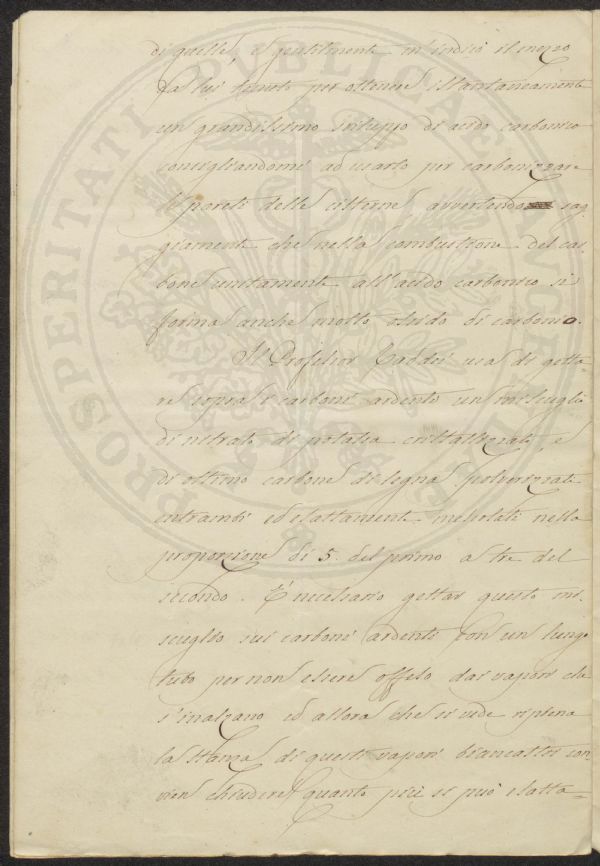 di quelle, e gentilmente m'indicò il mezzo
da lui tenuto per ottenere istantaneamente
un grandissimo sviluppo di acido carbonico
consigliandomi ad usarlo per carbonizzare
le pareti delle cisterne, avvertendo sag
giamente che nella combustione del car
bone unitamente all'acido carbonico si
forma anche molto ossido di carbonio.
Il Professor Taddei usa di getta
re sopra i carboni ardenti un miscuglio
di nitrato di potassa cristallizzato, e
di ottimo carbone di legna polverizzati
entrambi ed esattamente mescolati nella
proporzione di 5. del primo a tre del
secondo. È necessario gettar questo mi
scuglio sui carboni ardenti con un lungo
tubo per non essere offeso dai vapori che
s'inalzano ed allora che si vede ripiena
la stanza di questi vapori biancastri con
vien chiudere quanto più si può esatta=